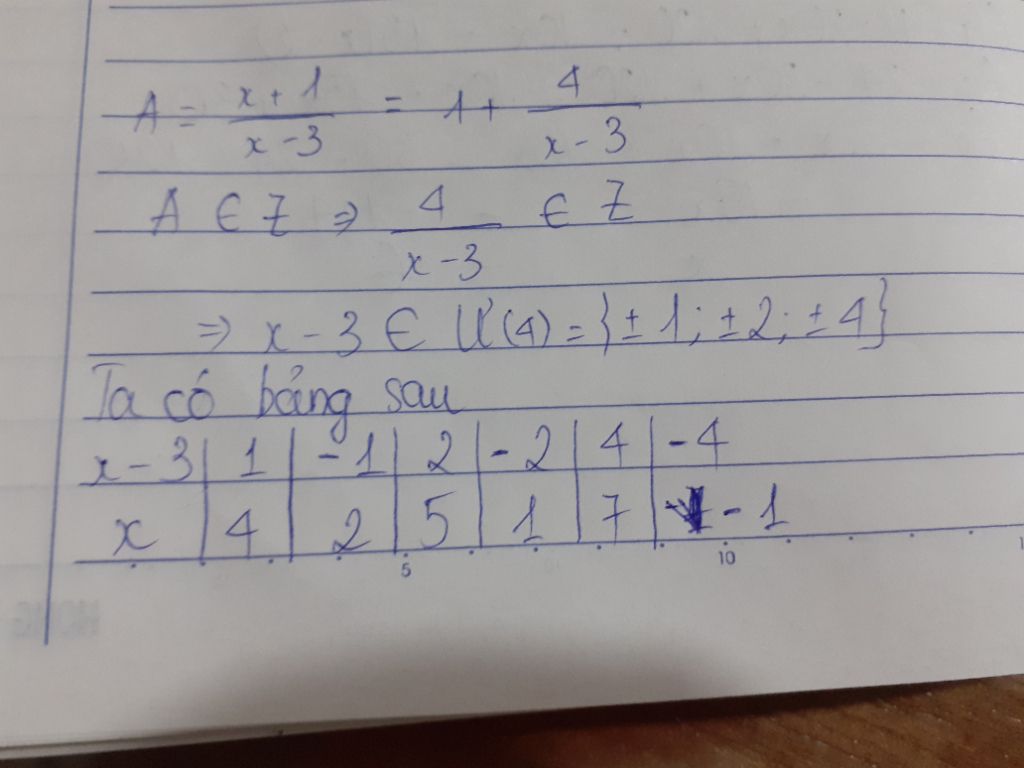 A = x+1/x-3 = 1 + 4/x-3
A ∈ Z ⇒ 4/x-3 ∈ Z
⇒ x - 3 ∈ Ư(4) = {±1; ±2; ±4}
Ta có bảng sau
x - 3 | 1 | -1 | 2 | -2 | 4 | -4
x | 4 | 2 | 5 | 1 | 7 | -1
5 10